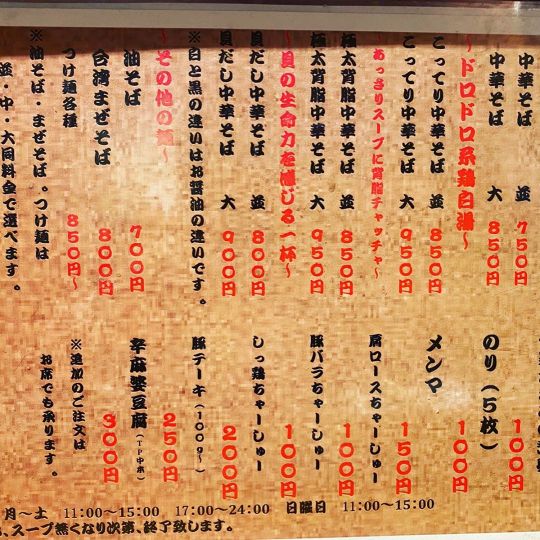 中華そば 並 750円
中華そば 大 850円
～ドロドロ系鶏白湯～
こってり中華そば 並 850円
こってり中華そば 大 950円
～あっさりスープに背脂チャッチャ～
極太背脂中華そば 並 850円
極太背脂中華そば 大 950円
～貝の生命力を感じる一杯～
貝だし中華そば 並 800円
貝だし中華そば 大 900円
※白と黒の違いはお醤油の違いです。
～その他の麺～
油そば 700円
台湾まぜそば 800円
つけ麺各種 850円～
※油そば・まぜそば。つけ麺は
並・中・大同料金で選べます。
100円
のり（5枚） 100円
メンマ 150円
肩ロースちゃーしゅー 100円
豚バラちゃーしゅー 100円
しっ鶏ちゃーしゅー 200円
豚テーキ（100g～） 250円
辛麻婆豆腐（TP中ホ） 300円
※追加のご注文は
お席でも承ります。
月～土 11:00～15:00 17:00～24:00 日曜日 11:00～15:00
、スープ無くなり次第、終了致します。